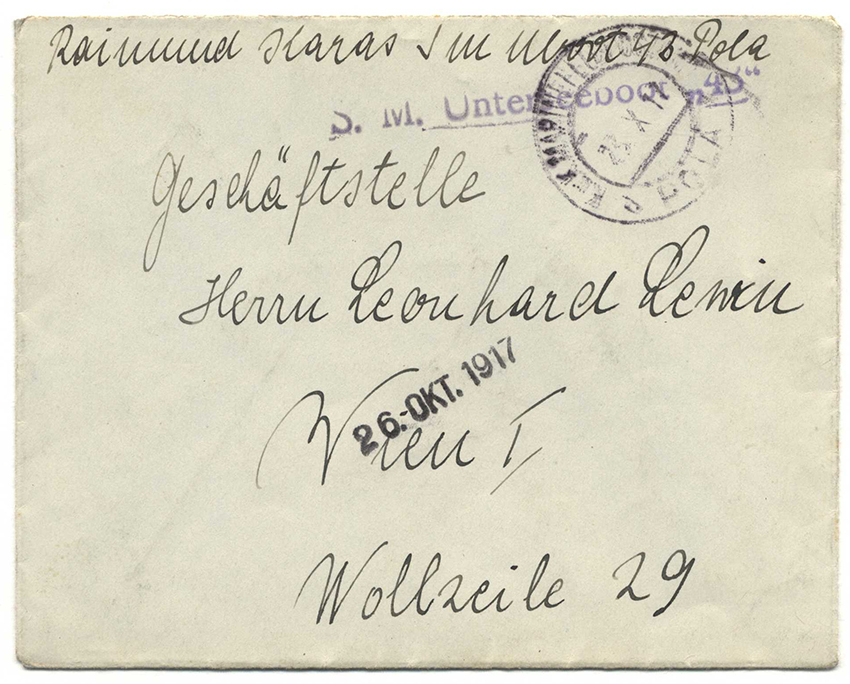 Raimund Karas S M Uboot 43 Pola
S. M. Unterseeboot „43“
K.u.K. MARINEFELDPOSTAMT POLA
23 X 17
Geschäftstelle
Herrn Leonhard Lewin
26. OKT. 1917
Wien I
Wollzeile 29